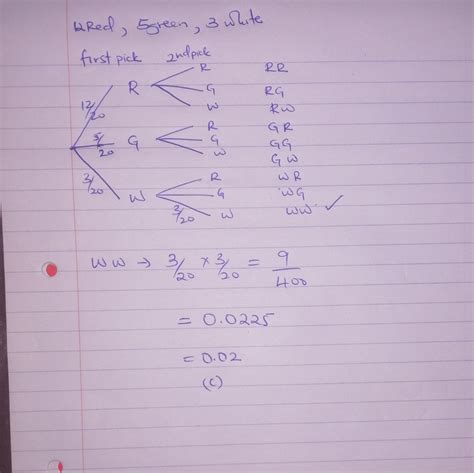 12Red, 5green, 3 white
first pick 2nd pick
R RR
12/20 R G RG
W RW
R GR
5/20 G G GG
W GW
R WR
3/20 W G WG
3/20 W WW ✓
WW → 3/20 × 3/20 = 9/400
= 0.0225
= 0.02
(c)